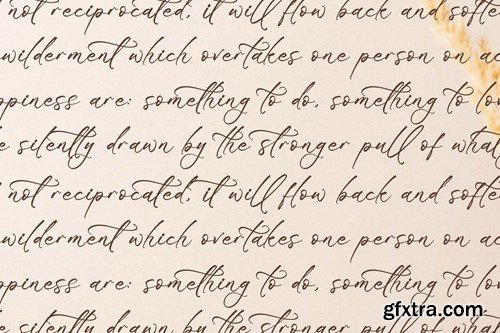 not reciprocated, it will flow back and softe
wilderment which overtakes one person on ac
ppiness are: something to do, something to lo
e silently drawn by the stronger pull of what
not reciprocated, it will flow back and softe
wilderment which overtakes one person on ac
ppiness are: something to do, something to lo
e silently drawn by the stronger pull of
gfxtra.com